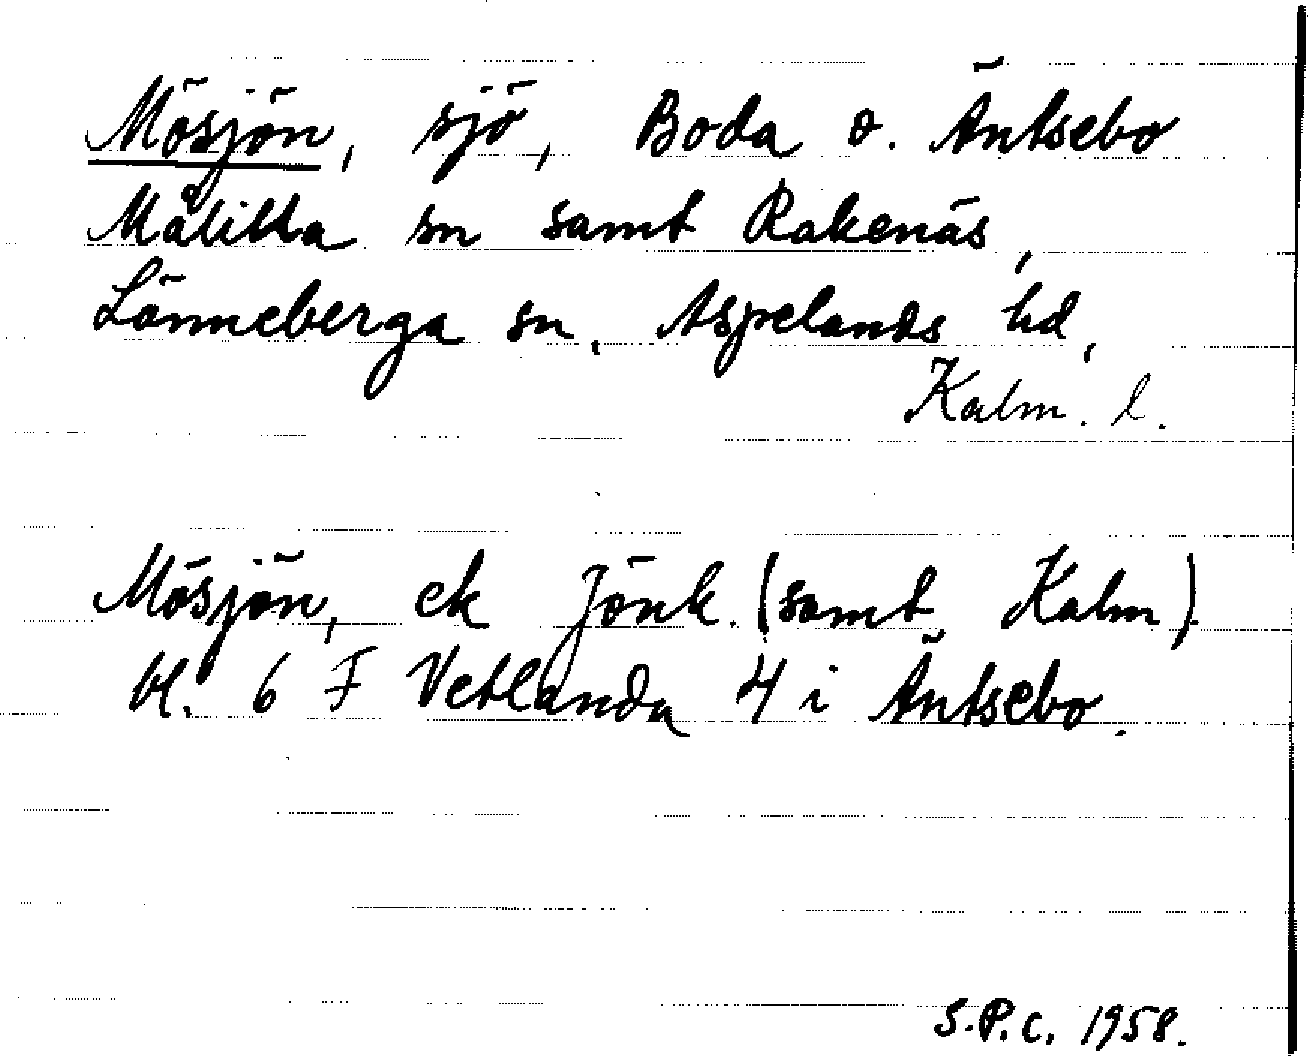 Mösjön, sjö, Boda o. Äntsebo
Målilla sn samt Rakenäs,
Lönneberga sn, Aspelands hd,
Kalm. l.
Mösjön, ek Jönk. (samt Kalm).
bl. 6 F Vetlanda 4 i Äntsebo.
S.P.C. 1958.